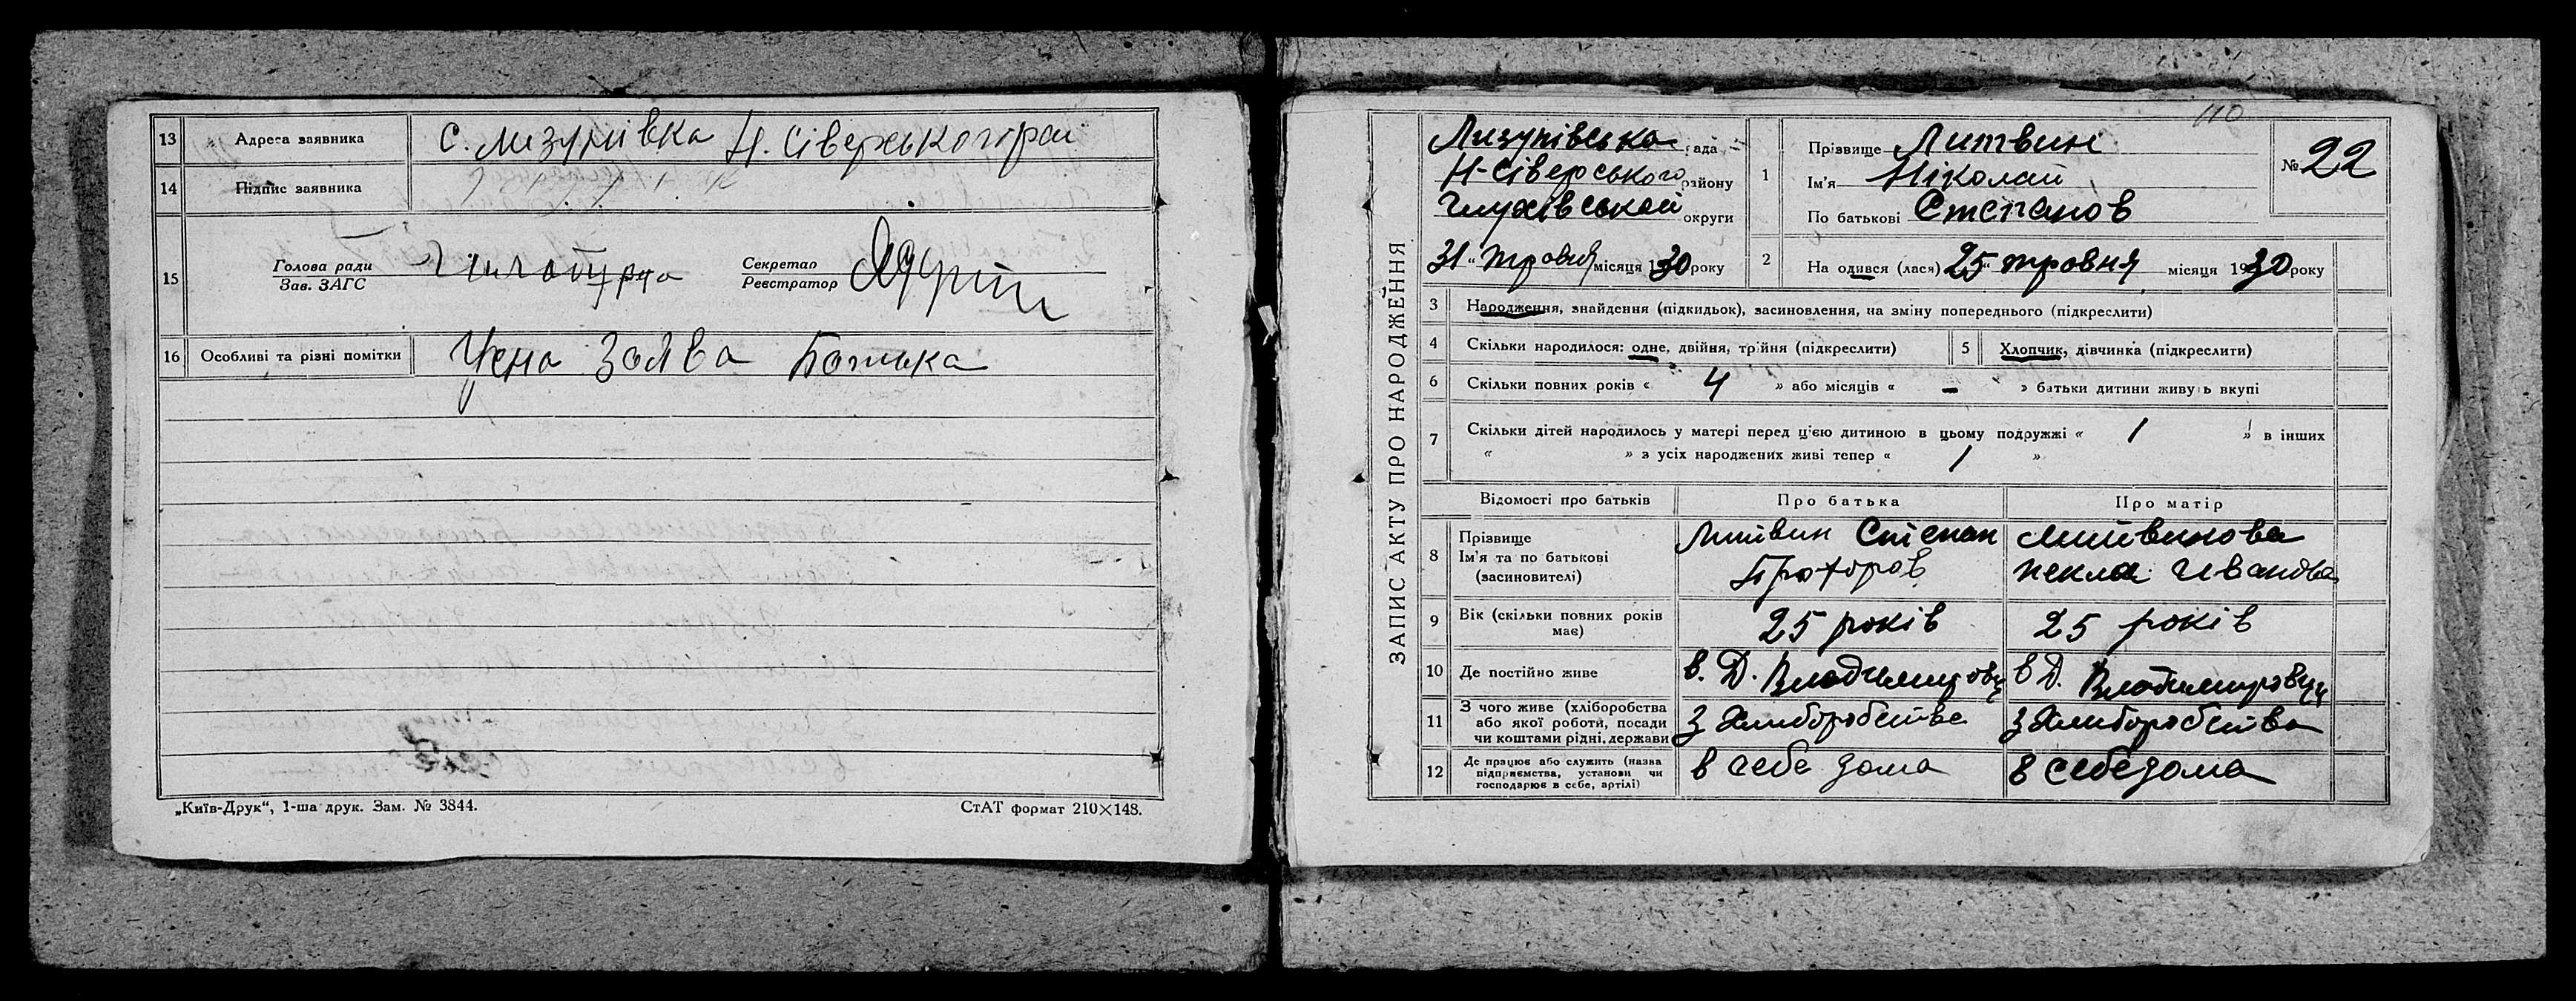 13 Адреса заявника С. Лизунівка Н. Сіверського рай
14 Підпис заявника
15 Голова ради
Зав. ЗАГС
Секретар
Реєстратор
16 Особливі та різні помітки Усна Заява Батька
„Київ-Друк“, 1-ша друк. Зам. № 3844. СтАТ формат 210×148.
110
ЗАПИС АКТУ ПРО НАРОДЖЕННЯ
Лизунівська рада
Н-Сіверського району
Глухівської округи
31 „ травня місяця 1930 року
1 Прізвище Литвин
Ім'я Ніколай
По батькові Степанов
№ 22
2 На одився (лася) 25 „ травня місяця 1930 року
3 Народження, знайдення (підкидьок), засиновлення, на зміну попереднього (підкреслити)
4 Скільки народилося: одне, двійня, трійня (підкреслити) 5 Хлопчик, дівчинка (підкреслити)
6 Скільки повних років « 4 » або місяців « – » батьки дитини живуть вкупі
7 Скільки дітей народилось у матері перед цією дитиною в цьому подружжі « 1 » в інших
« » з усіх народжених живі тепер « 1 »
Відомості про батьків Про батька Про матір
8 Прізвище
Ім'я та по батькові
(засновителі)
Литвин Степан
Прохоров
Литвинова
Текла Іванова
9 Вік (скільки повних років
має) 25 років 25 років
10 Де постійно живе в. Д. Владимировці в Д. Владимировці
11 З чого живе (хліборобства
або якої роботи, посади
чи коштами рідні, держави
З Хлиборобства З Хлиборобства
12 Де працює або служить (назва
підприємства, установи чи
господарює в себе, артілі)
в себе дома в себе дома